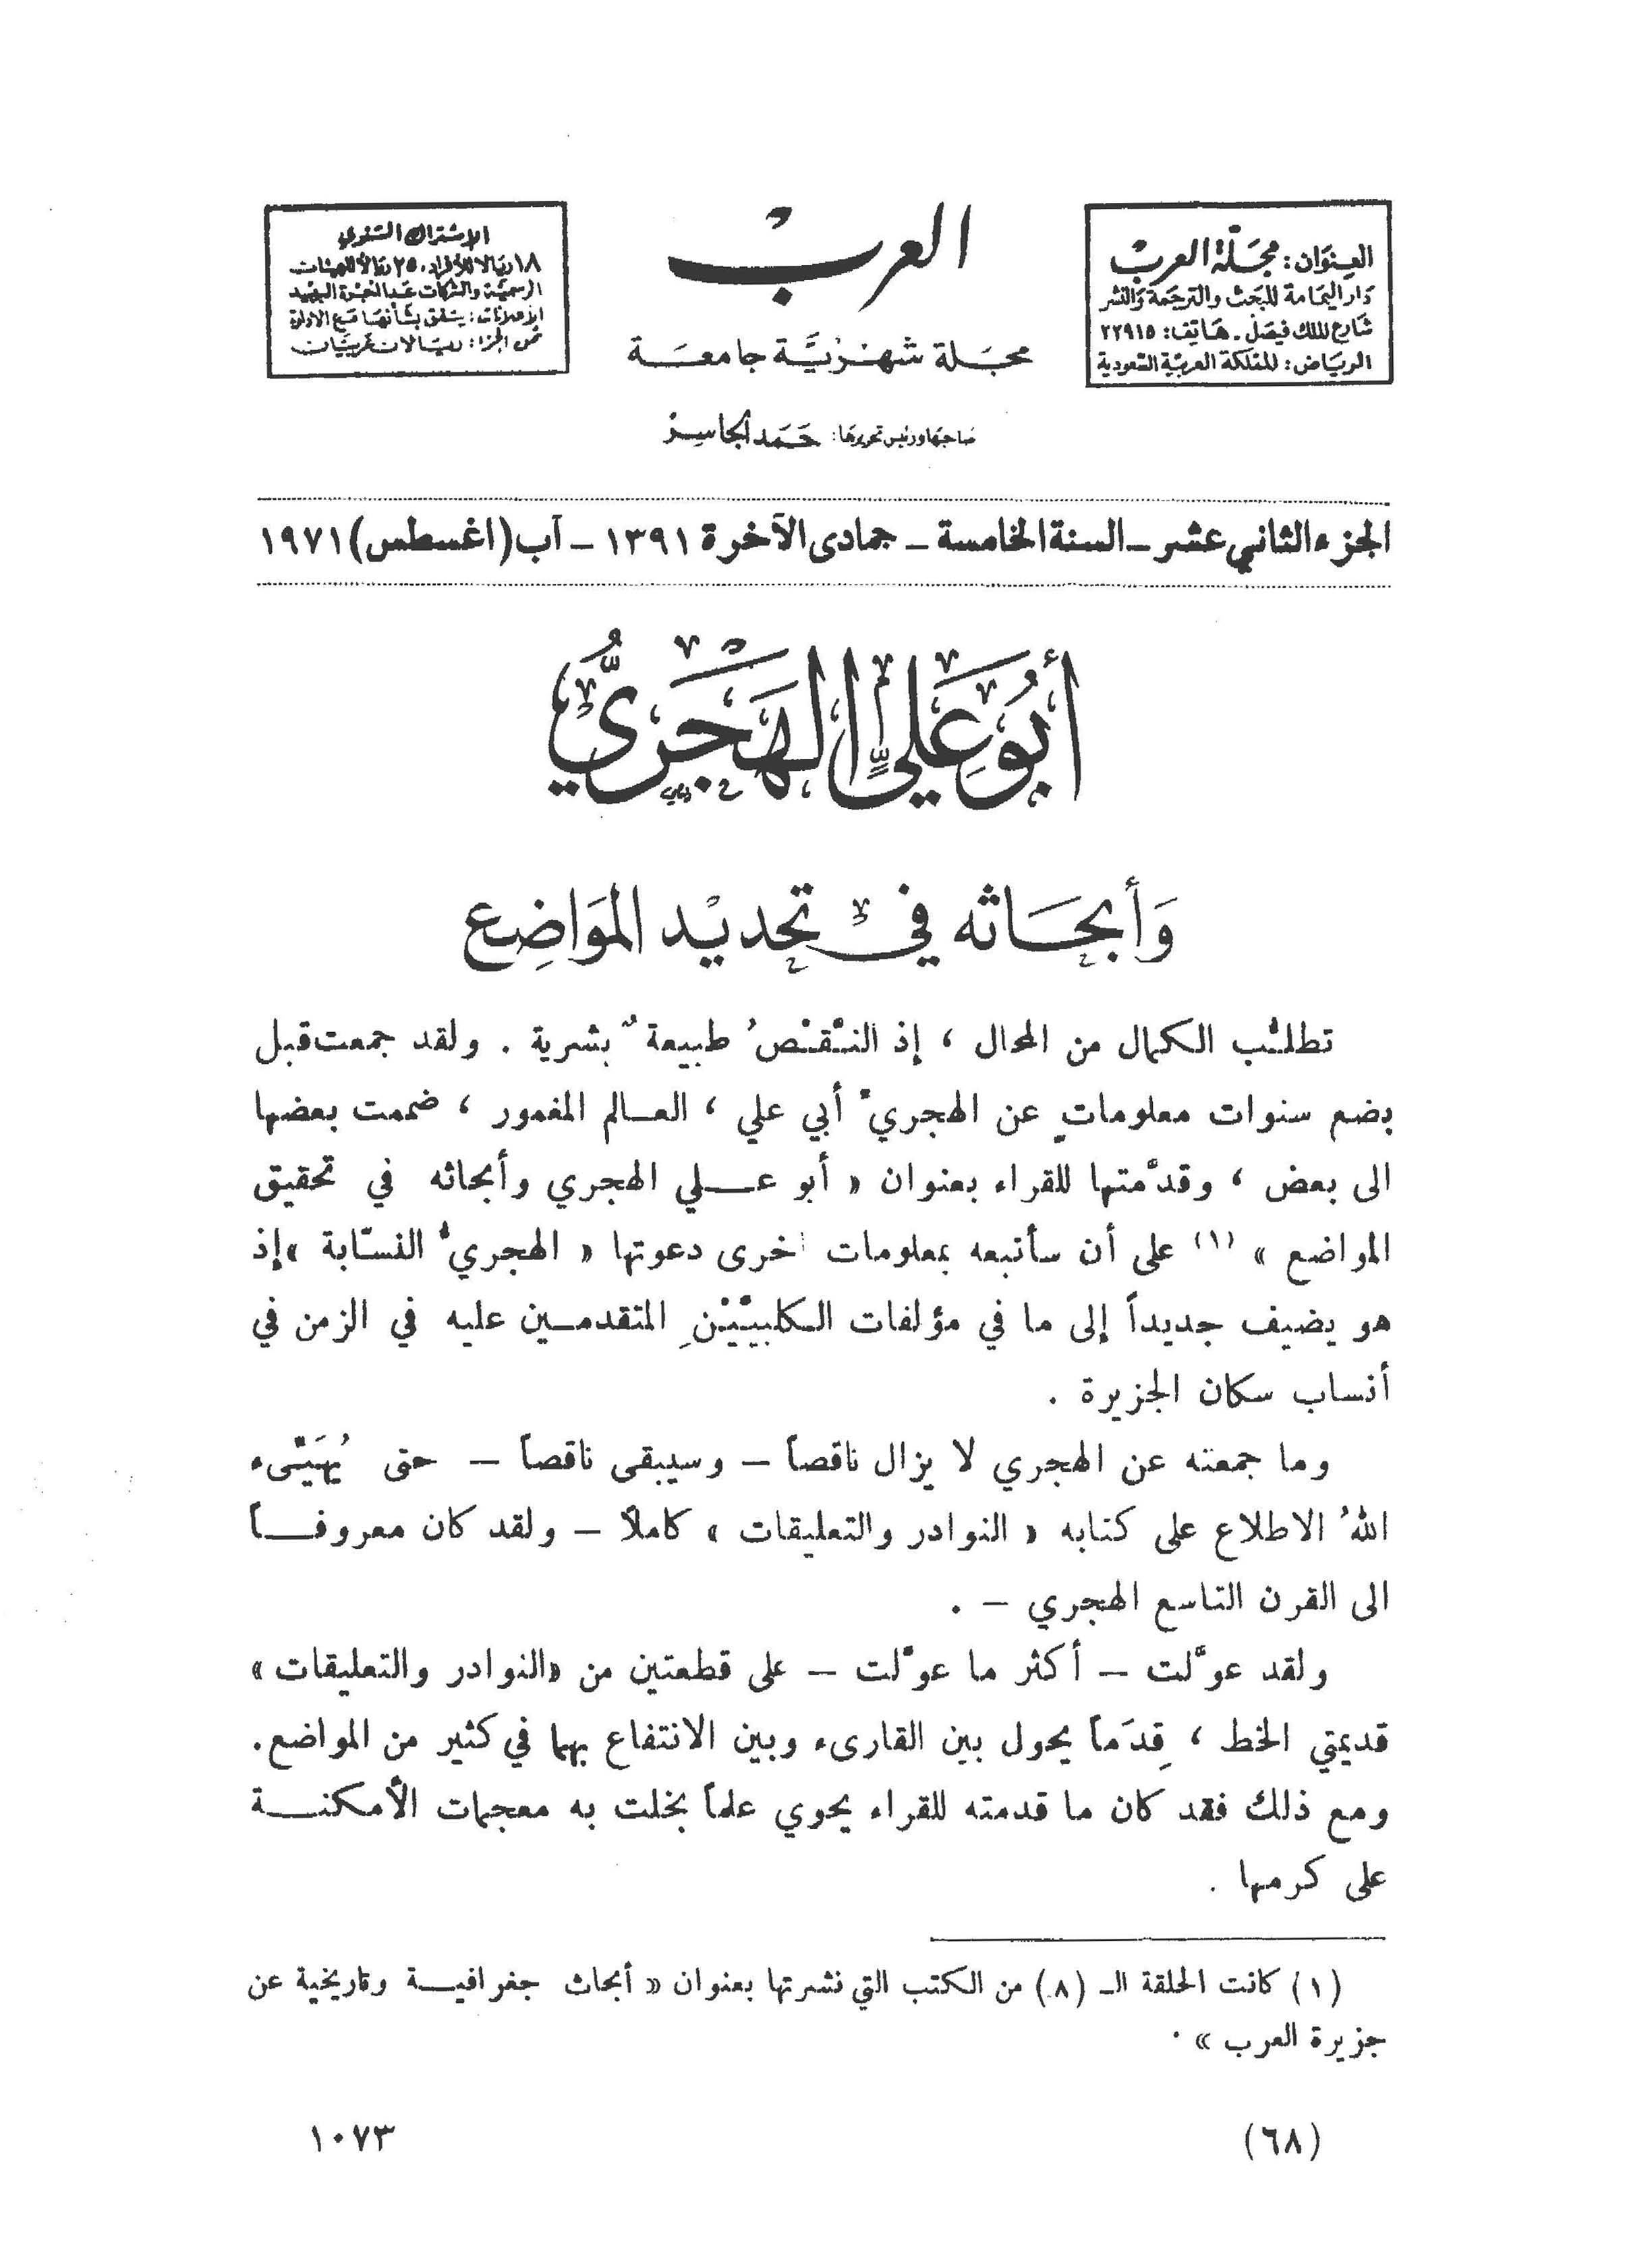 العنوان: مجلة العرب
دار اليمامة للبحث والترجمة والنشر
شارع الملك فيصل ـ هاتف: ٢٢٩١٥
الرياض: المملكة العربية السعودية
العرب
مجلة شهرية جامعة
صاحبها ورئيس تحريرها: حمد الجاسر
الاشتراك السنوي
١٨ ريالا للأفراد، ٢٥ ريالا للهيئات
الرسمية والشركات
الإعلانات: يتفق بشأنها مع الادارة
ثمن الجزء: ريالان عربيان
الجزء الثاني عشر ـ السنة الخامسة ـ جمادى الآخرة ١٣٩١ ـ آب (اغسطس) ١٩٧١
أَبُو عَلِيٍّ الْهَجَرِيُّ
وَأبحَاثه في تحديْد المَوَاضِع
تطلُّب الكمال من المحال ، إذ النَّقْصُ طبيعةٌ بشرية . ولقد جمعت قبل
بضع سنوات معلوماتٍ عن الهجريّ أبي علي ، العالم المغمور ، ضممت بعضها
الى بعض ، وقدَّمتها للقراء بعنوان « أبو عــلي الهجري وأبحاثه في تحقيق
المواضع » (١) على أن سأتبعه بمعلومات اخرى دعوتها « الهجريُّ النسّابة » إذ
هو يضيف جديداً إلى ما في مؤلفات الكلبيَّيْنِ المتقدمـين عليه في الزمن في
أنساب سكان الجزيرة .
وما جمعته عن الهجري لا يزال ناقصاً – وسيبقى ناقصاً – حتى يُهَيِّىء
اللهُ الاطلاع على كتابه « النوادر والتعليقات » كاملاً – ولقد كان معروفــاً
الى القرن التاسع الهجري – .
ولقد عوَّلت – أكثر ما عوَّلت – على قطعتين من «النوادر والتعليقات»
قديمتي الخط ، قِدَماً يحول بين القارىء وبين الانتفاع بهما في كثير من المواضع.
ومع ذلك فقد كان ما قدمته للقراء يحوي علماً بخلت به معجمات الأمكنــة
على كرمها .
(١) كانت الحلقة الـ (٨) من الكتب التي نشرتها بعنوان « أبحاث جغرافيــة وتاريخية عن
جزيرة العرب » .
(٦٨)
١٠٧٣